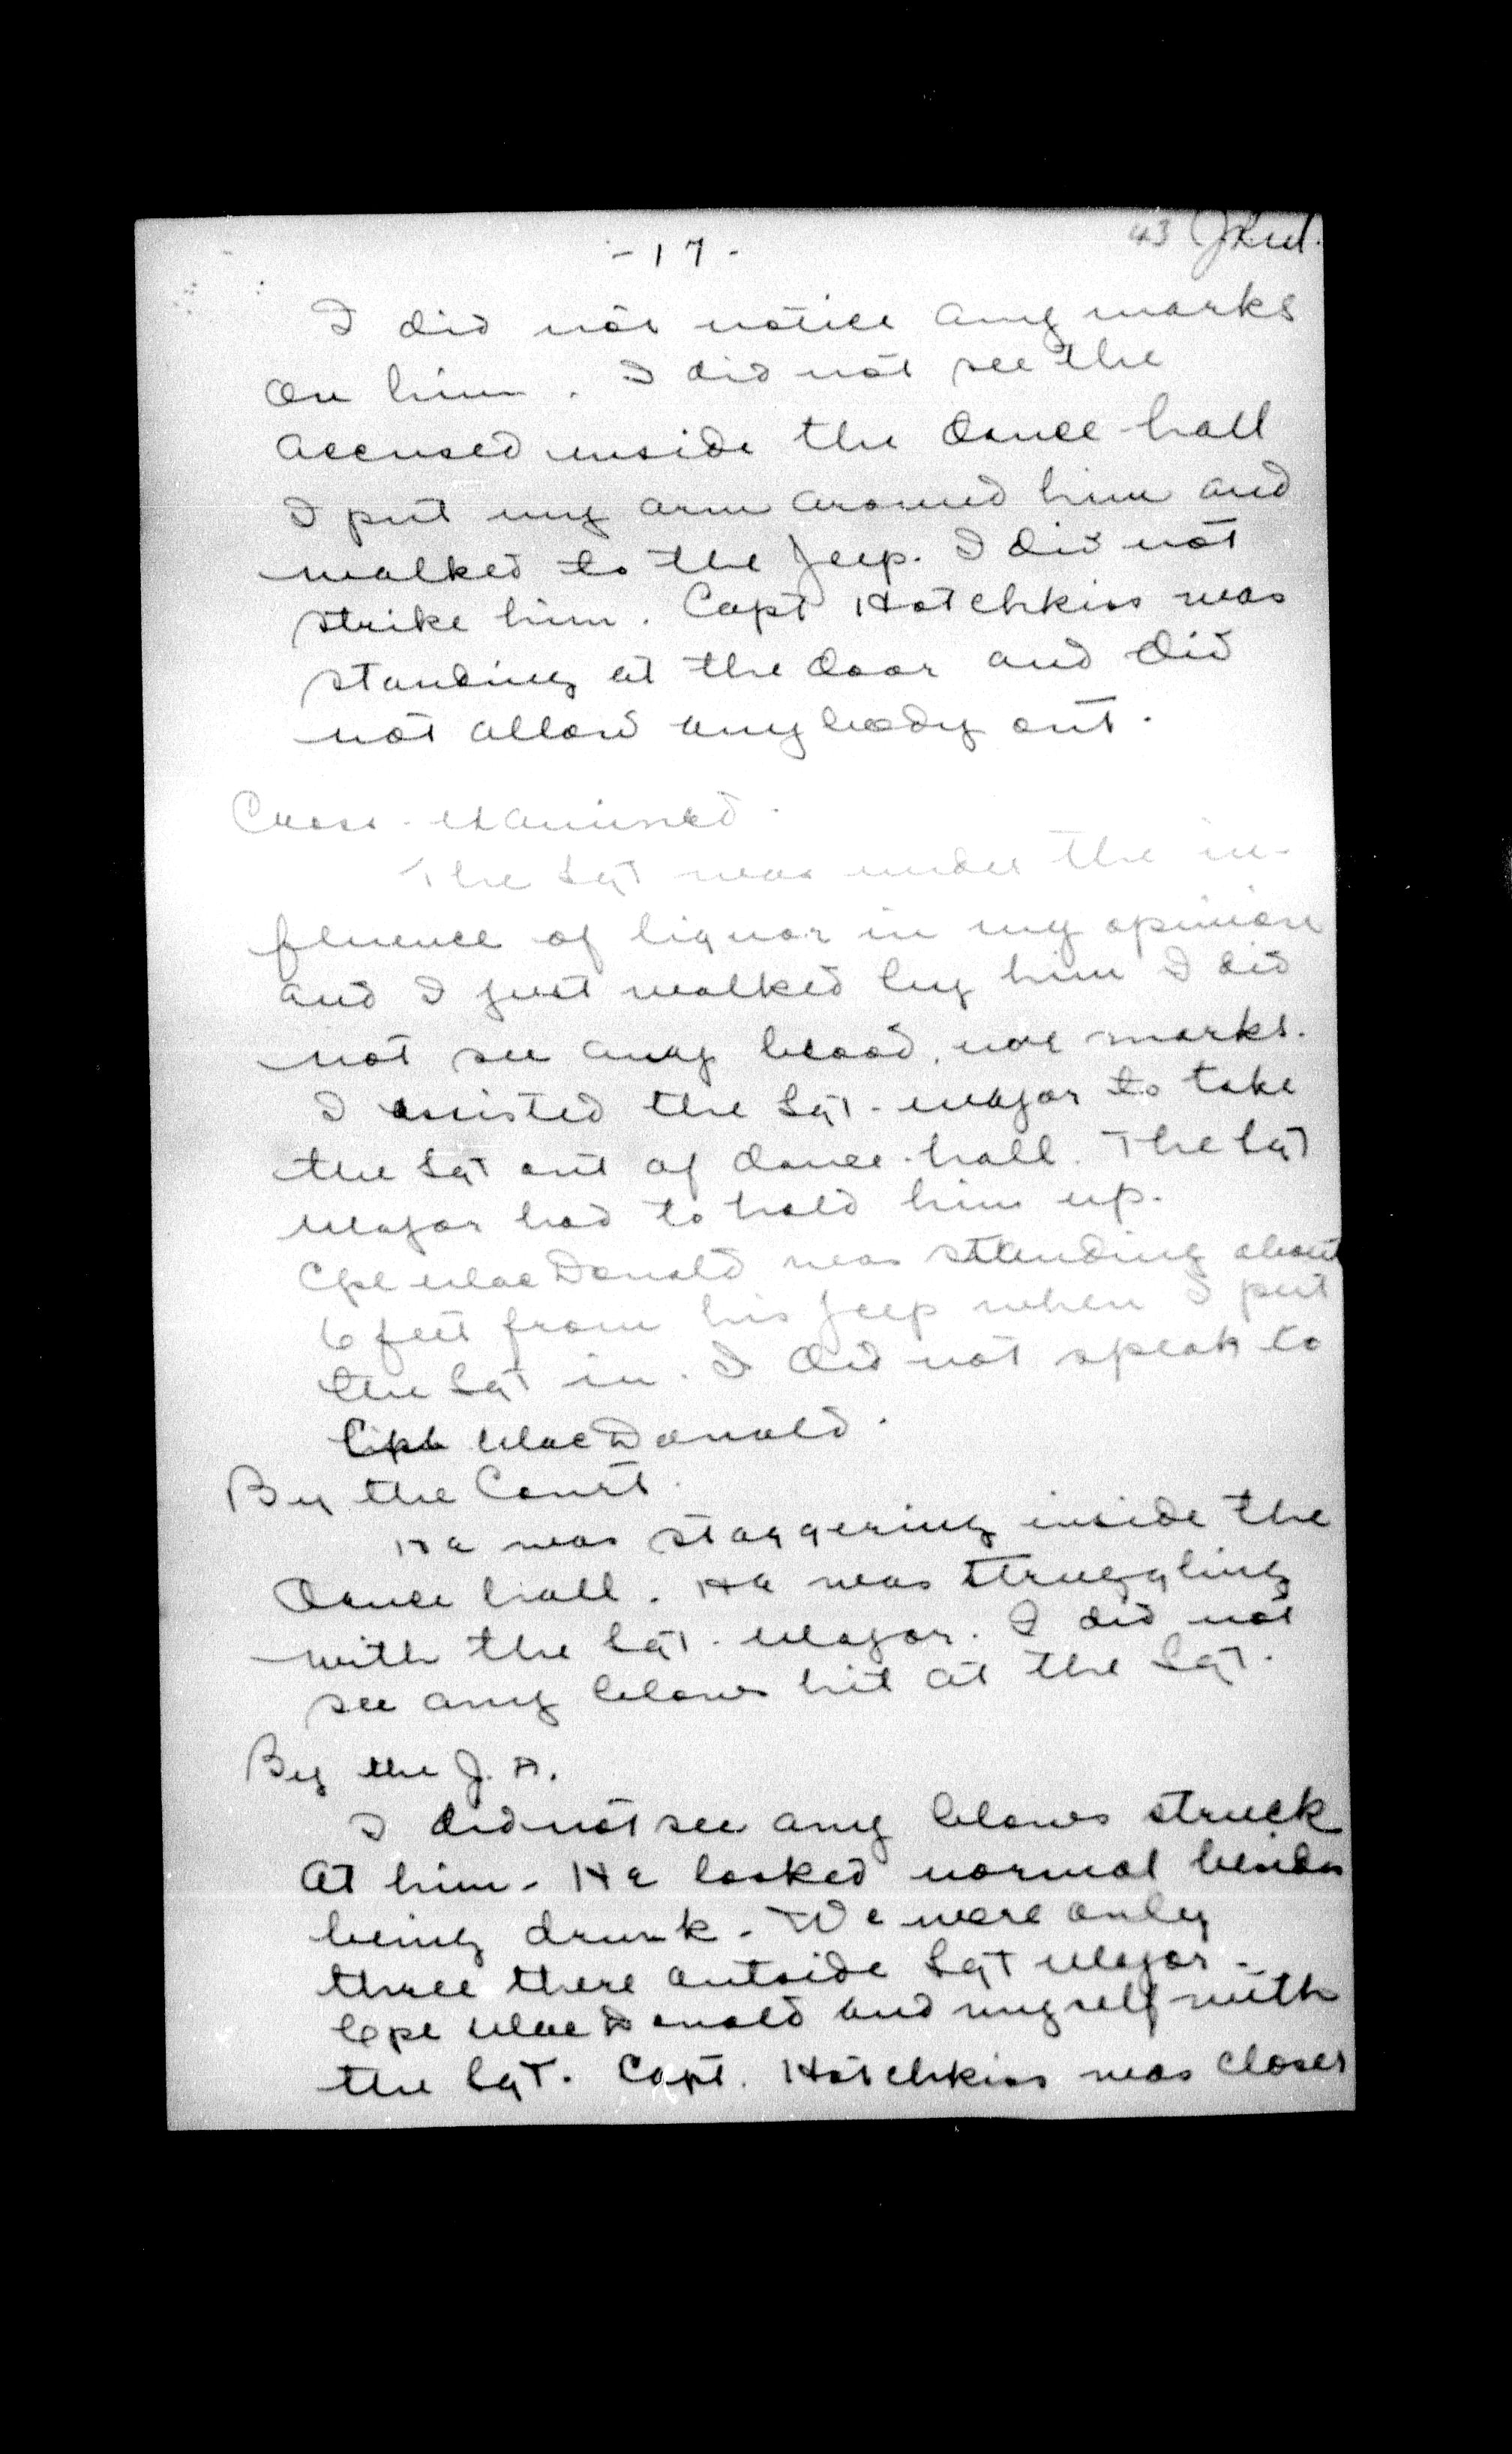 - 17 -
43
I did not notice any marks
on him. I did not see the
accused inside the dance hall
I put my arm around him and
walked to the Jeep. I did not
strike him. Capt Hotchkiss was
standing at the door and did
not allow anybody out.
Cross-examined.
The Sgt was under the in-
fluence of liquor in my opinion
and I just walked by him I did
not see any blood, nor marks.
I assisted the Sgt-Major to take
the Sgt out of dance-hall. The Sgt
Major had to hold him up.
Cpl MacDonald was standing about
6 feet from his Jeep when I put
the Sgt in. I did not speak to
Cpl MacDonald.
By the Court.
He was staggering inside the
Dance hall. He was struggling
with the Sgt-Major. I did not
see any blows hit at the Sgt.
By the J. A.
I did not see any blows struck
at him. He looked normal besides
being drunk. We were only
three there outside Sgt Major -
Cpl MacDonald and myself with
the Sgt. Capt. Hotchkiss was closer